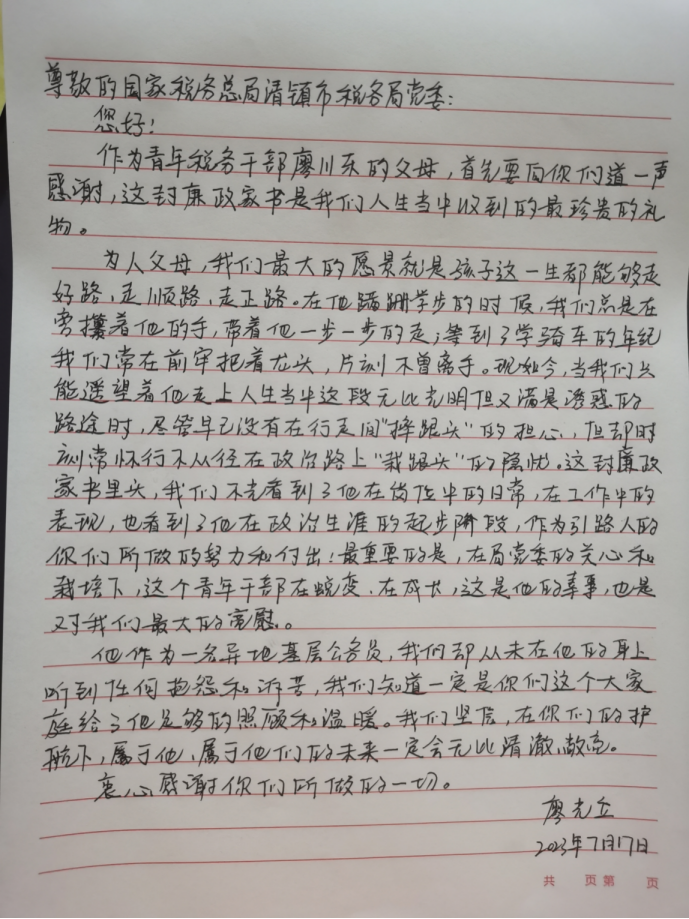 尊敬的国家税务总局清镇市税务局党委：
您好！
作为青年税务干部廖川东的父母，首先要向你们道一声
感谢，这封廉政家书是我们人生当中收到的最珍贵的礼
物。
为人父母，我们最大的愿景就是孩子这一生都能够走
好路，走顺路，走正路。在他蹒跚学步的时候，我们总是在
旁攥着他的手，带着他一步一步的走；等到了学骑车的年纪
我们常在前牢把着龙头，片刻不曾离手。现如今，当我们只
能遥望着他走上人生当中这段无比光明但又满是诱惑的
路途时，尽管早已没有在行走间"摔跟头"的担心，但却时
刻常怀行不从径在政治路上"栽跟头"的隐忧。这封廉政
家书里头，我们不光看到了他在岗位中的日常，在工作中的
表现，也看到了他在政治生涯的起步阶段，作为引路人的
你们所做的努力和付出！最重要的是，在局党委的关心和
栽培下，这个青年干部在蜕变、在成长，这是他的幸事，也是
对我们最大的宽慰。
他作为一名异地基层公务员，我们却从未在他的身上
听到任何抱怨和诉苦，我们知道一定是你们这个大家
庭给了他足够的照顾和温暖。我们坚信，在你们的护
航下，属于他、属于他们的未来一定会无比清澈、敞亮。
衷心感谢你们所做的一切。
廖光立
2023年7月17日
共 页 第 页